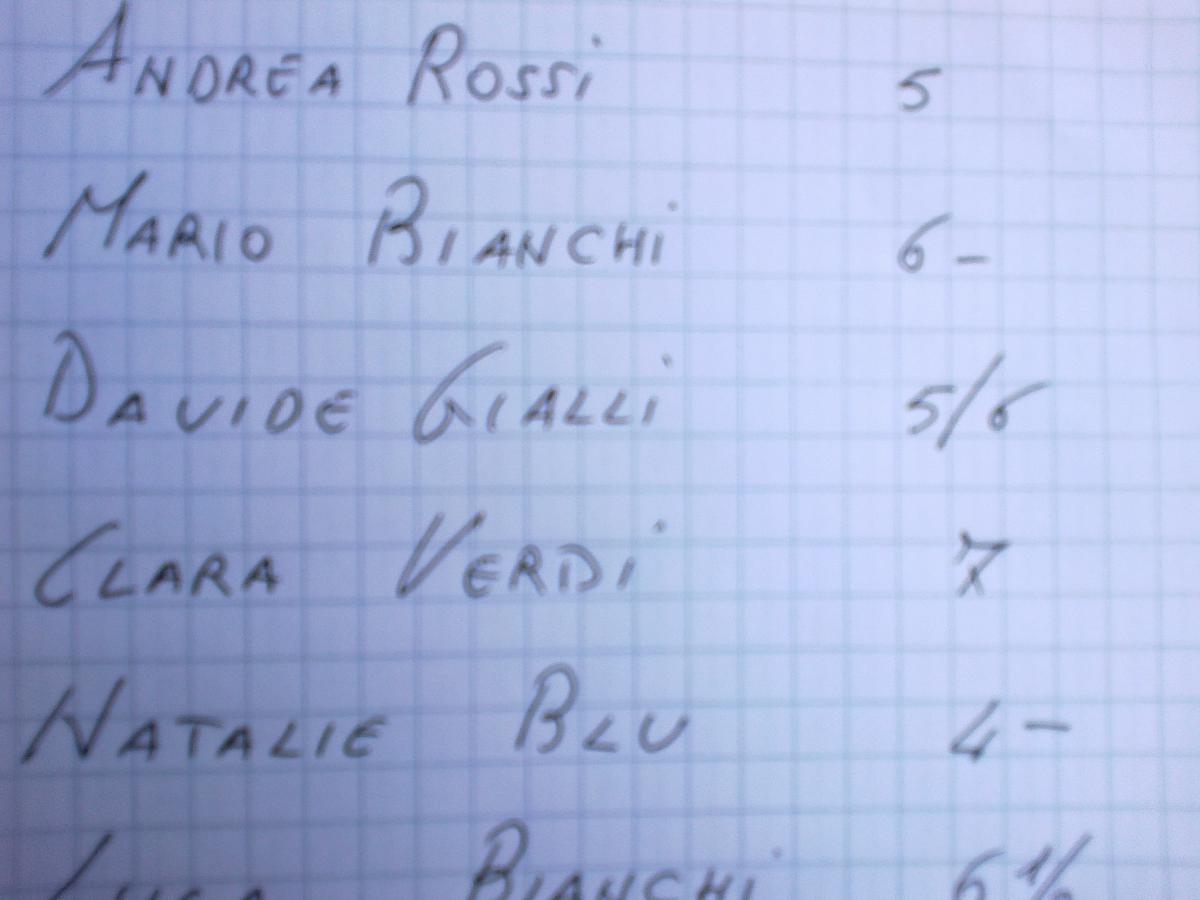 ANDREA ROSSi 5
MARIO BIANCHi 6-
DAVIDE GIALLi 5/6
CLARA VERDi 7
NATALIE BLU 4-
LUCA BIANCHi 6 1/2